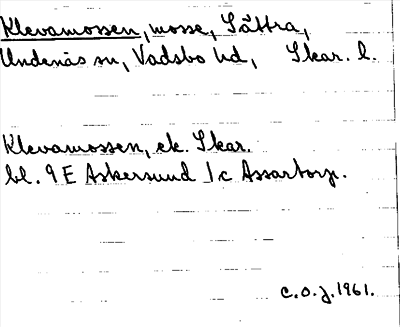 Klevamossen, mosse, Sättra,
Undenäs sn, Vadsbo hd, Skar. l.
Klevamossen, ek. Skar.
bl. 9E Askersund 1c Assartorp.
C.O.J. 1961.